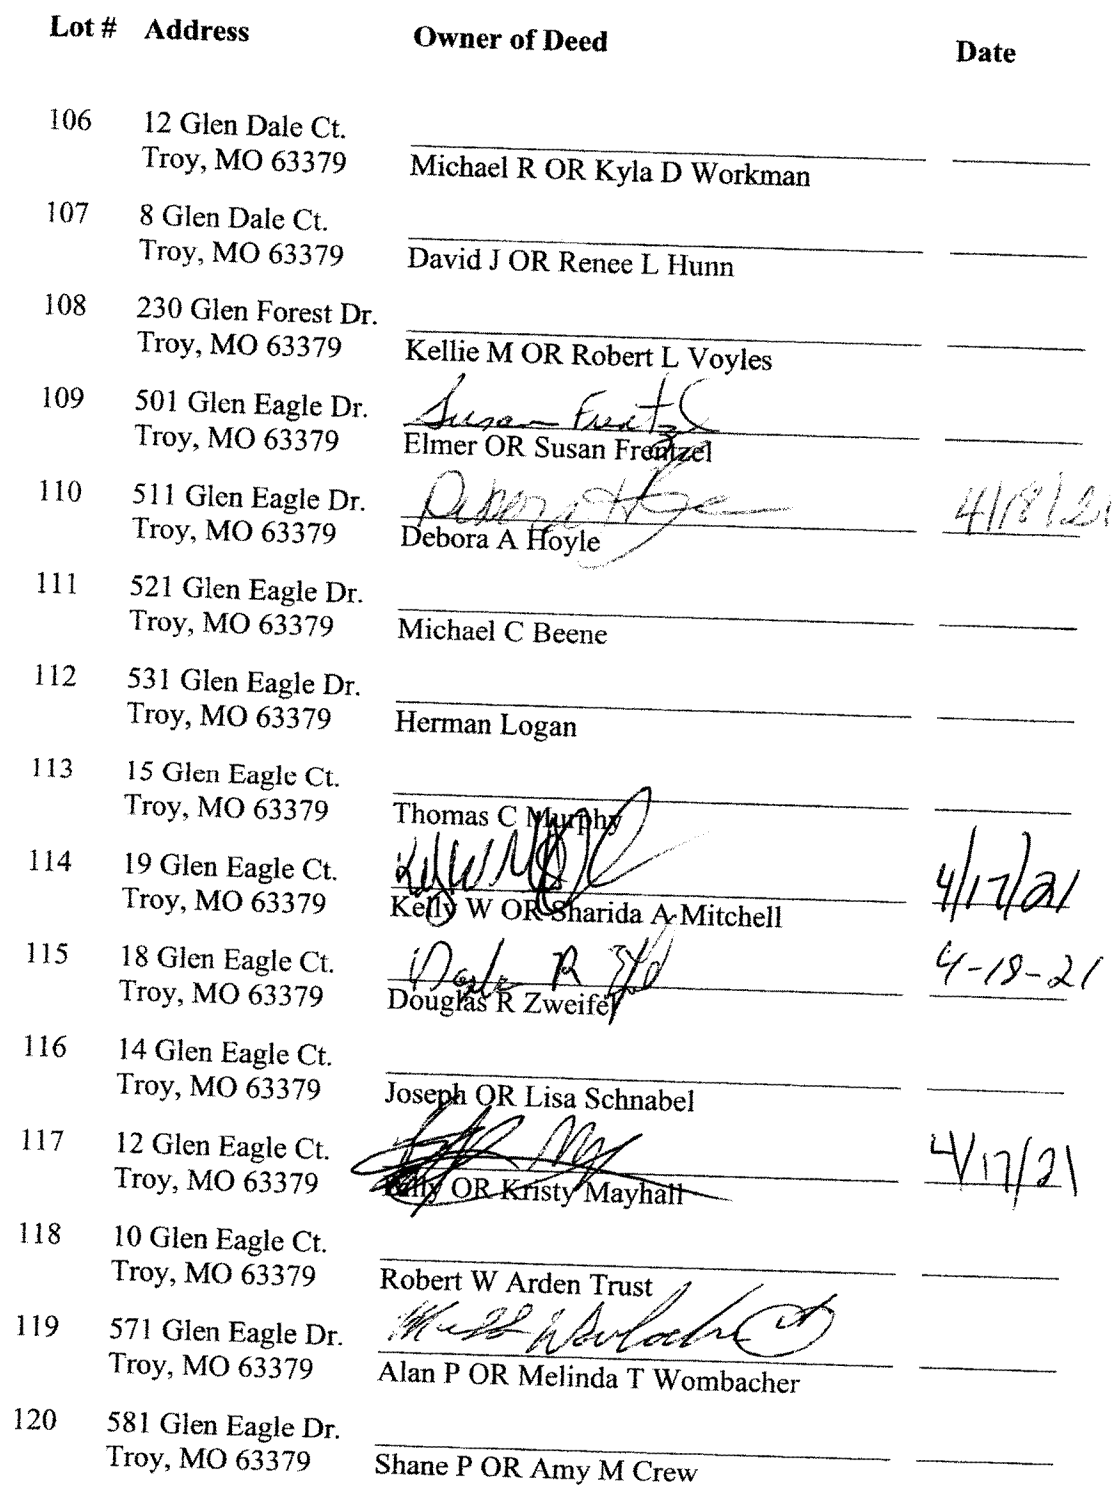 Lot # Address Owner of Deed Date
106 12 Glen Dale Ct.
Troy, MO 63379 Michael R OR Kyla D Workman
107 8 Glen Dale Ct.
Troy, MO 63379 David J OR Renee L Hunn
108 230 Glen Forest Dr.
Troy, MO 63379 Kellie M OR Robert L Voyles
109 501 Glen Eagle Dr. Susan Frentzel
Troy, MO 63379 Elmer OR Susan Frentzel
110 511 Glen Eagle Dr. Debora Hoyle 4/18/21
Troy, MO 63379 Debora A Hoyle
111 521 Glen Eagle Dr.
Troy, MO 63379 Michael C Beene
112 531 Glen Eagle Dr.
Troy, MO 63379 Herman Logan
113 15 Glen Eagle Ct.
Troy, MO 63379 Thomas C Murphy
114 19 Glen Eagle Ct. Kelly W 4/17/21
Troy, MO 63379 Kelly W OR Sharida A Mitchell
115 18 Glen Eagle Ct. R 4-18-21
Troy, MO 63379 Douglas R Zweifel
116 14 Glen Eagle Ct.
Troy, MO 63379 Joseph OR Lisa Schnabel
117 12 Glen Eagle Ct. 4/17/21
Troy, MO 63379 OR Kristy Mayhall
118 10 Glen Eagle Ct.
Troy, MO 63379 Robert W Arden Trust
119 571 Glen Eagle Dr.
Troy, MO 63379 Alan P OR Melinda T Wombacher
120 581 Glen Eagle Dr.
Troy, MO 63379 Shane P OR Amy M Crew